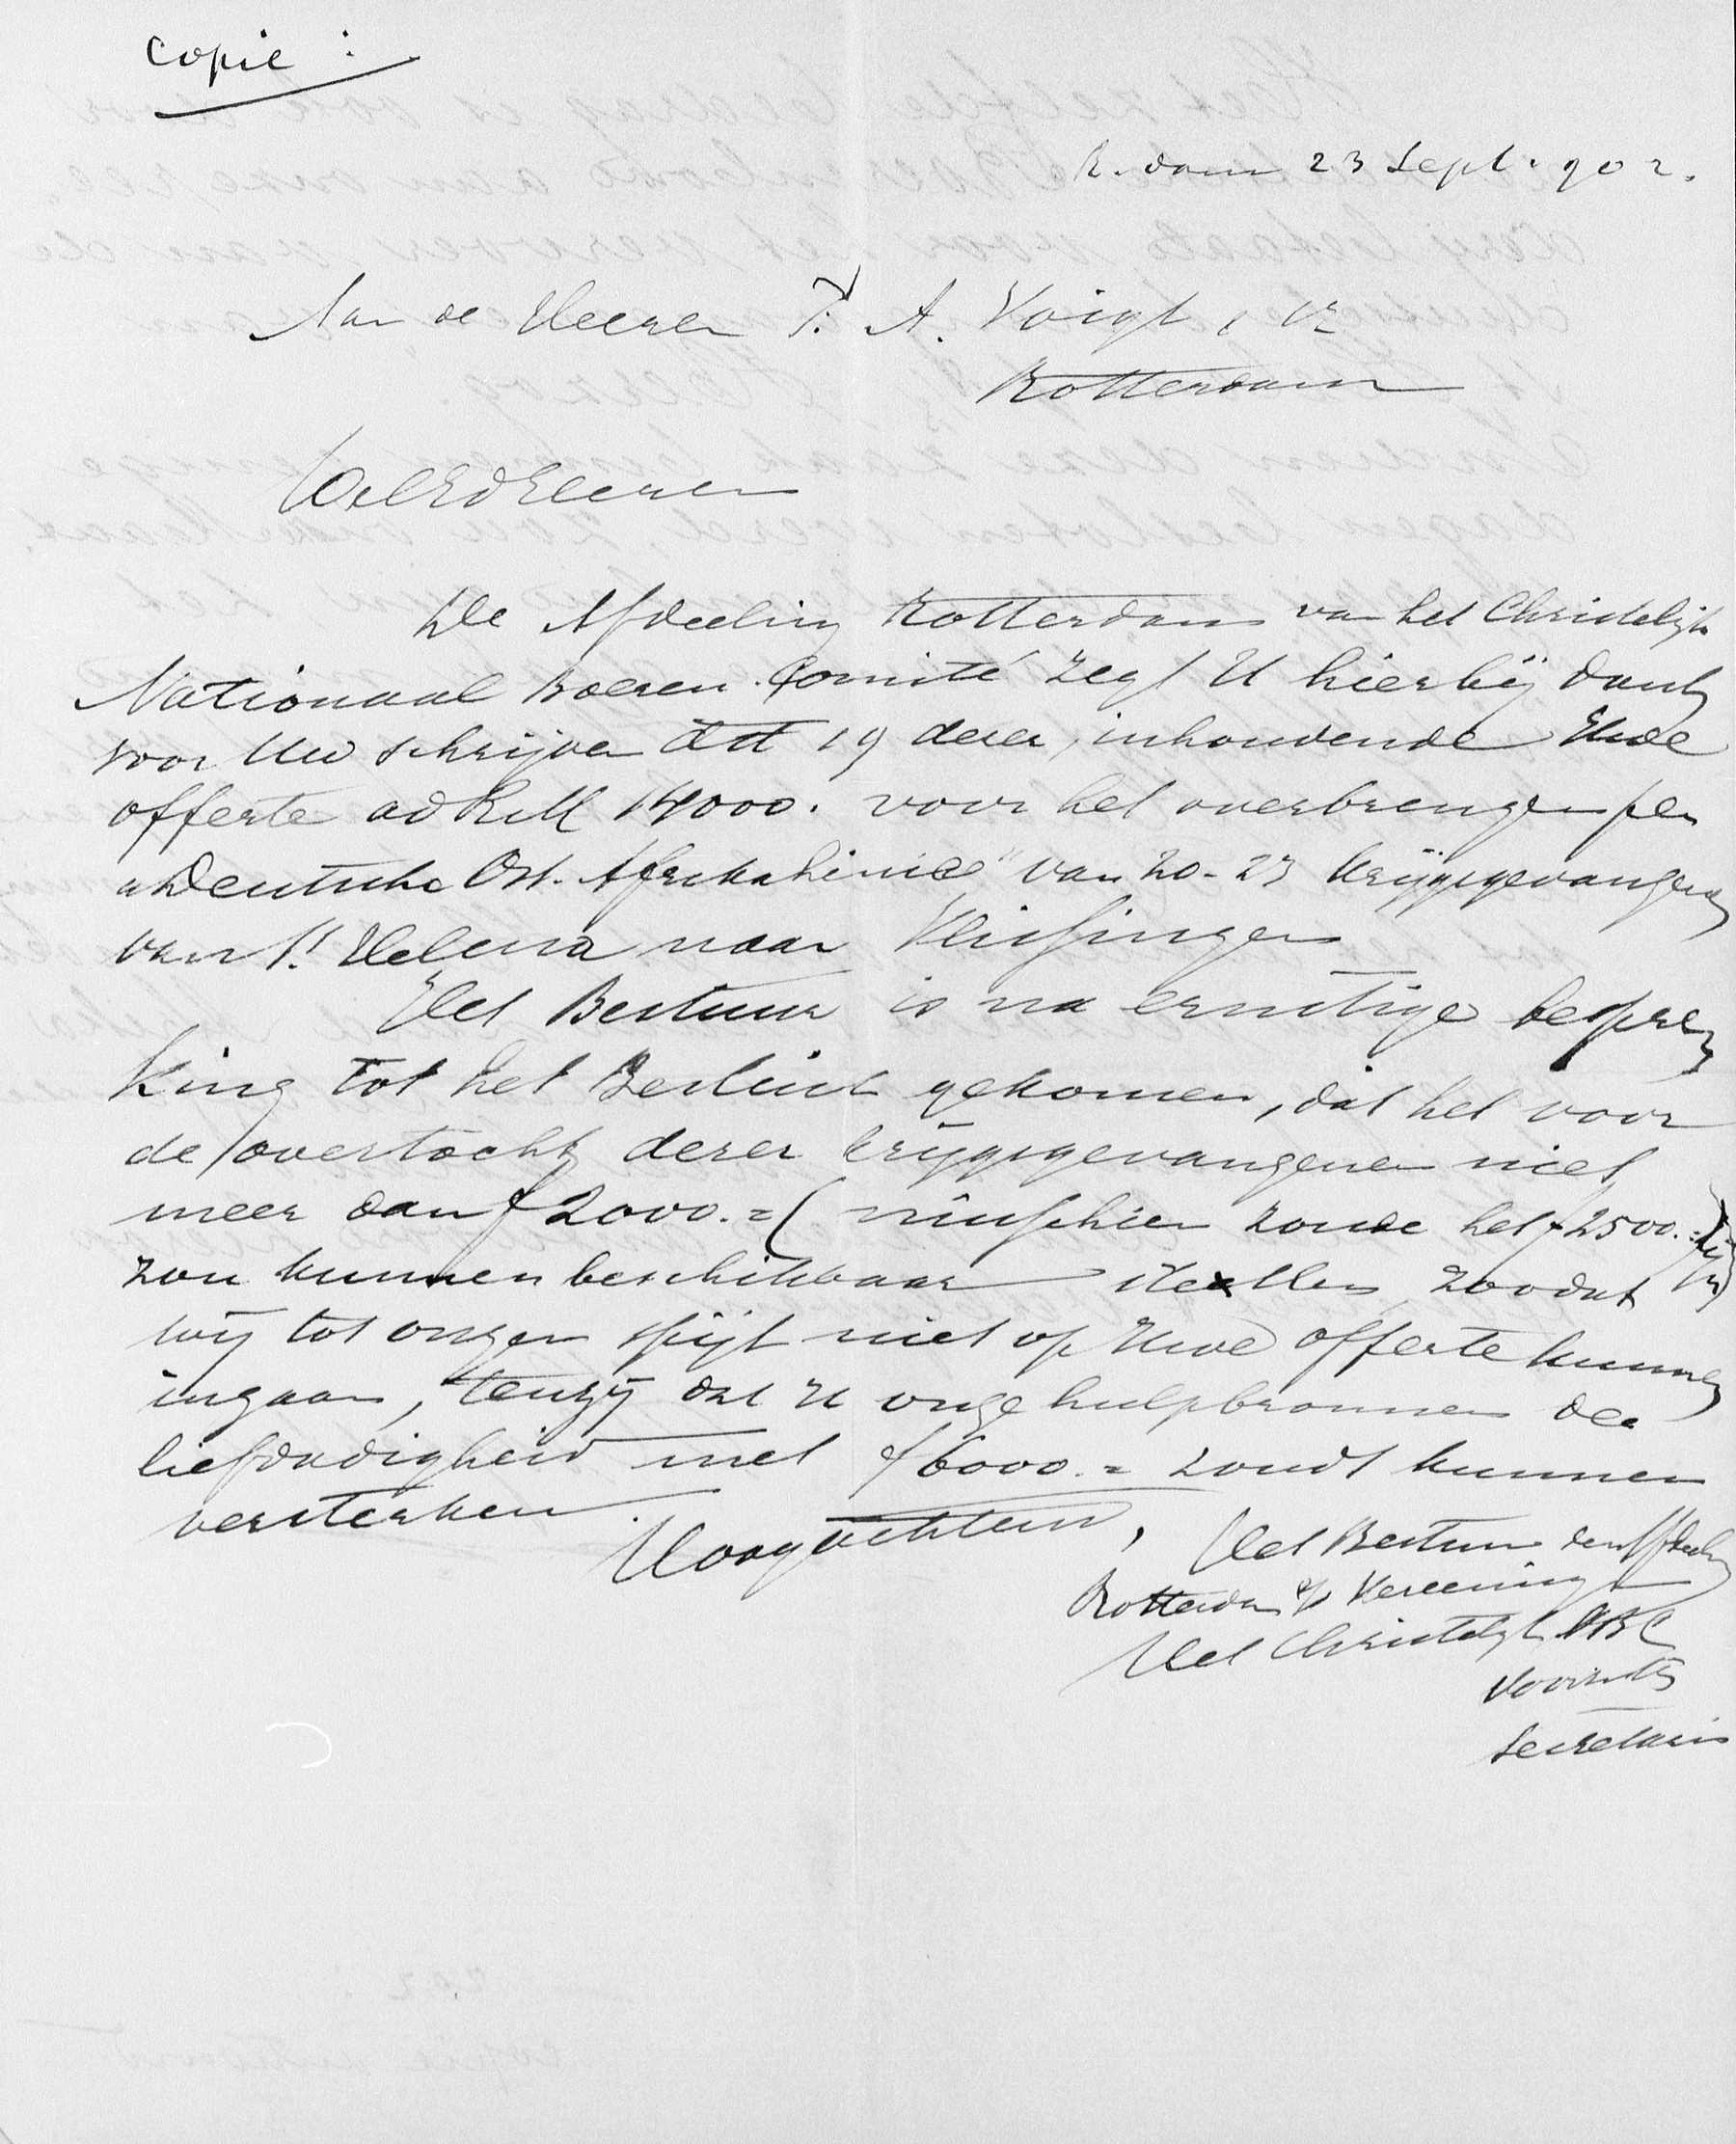 Copie :
R.dam 23 Sept. 902.
Aan de Heeren P. A. Voigt,
Rotterdam
WelEdHeeren
De Afdeeling Rotterdam van het Christelijk
Nationaal Boeren Comité zegt U hierbij dank
voor Uw schrijven dd 19 dezer, inhoudende Uwe
offerte ad RM 14000. voor het overbrengen per
"Deutsche Ost-Afrika Linie" van 20-25 krijgsgevangenen
van St Helena naar Vlissingen
Het Bestuur is na ernstige bespre
king tot het Besluit gekomen, dat het voor
de overtocht dezer krijgsgevangenen niet
meer dan f 2000.= (misschien zoude het f 2500.= zijn)
zou kunnen beschikbaar stellen, zoodat
wij tot onzen spijt niet op Uwe offerte kunnen
ingaan, tenzij dat U onze hulpbronnen der
liefdadigheid met f 6000.= zoudt kunnen
versterken.
Hoogachtend,
Het Bestuur der Afdeeling
Rotterdam v/d Vereeniging
Het Christelijk NBC
Voorzitter
Secretaris